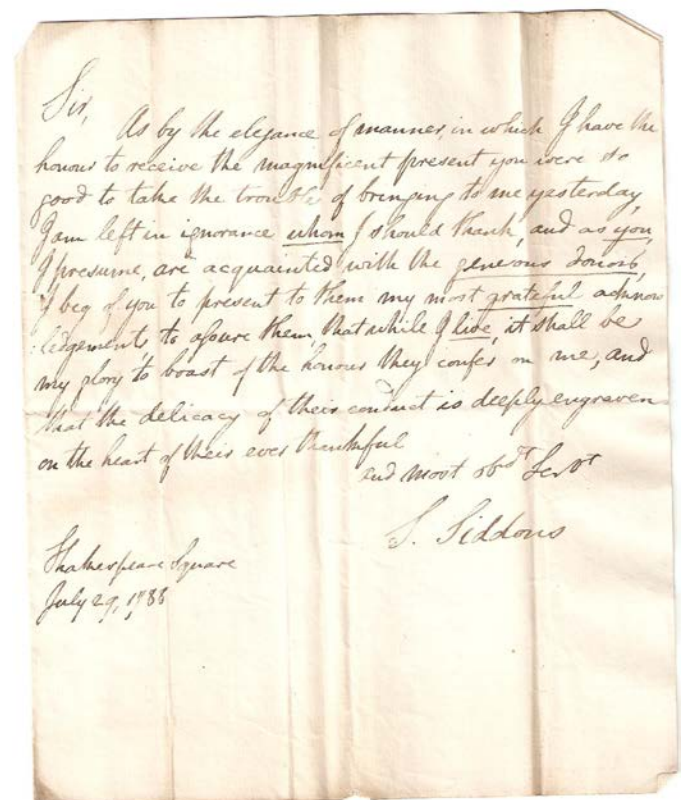 Sir,
As by the elegance of manner, in which I have the
honour to receive the magnificent present you were so
good to take the trouble of bringing to me yesterday,
I am left in ignorance whom I should thank, and as you,
I presume, are acquainted with the generous donors,
I beg of you to present to them my most grateful acknow
ledgements, to assure them, that while I live, it shall be
my glory to boast of the honour they confer on me, and
that the delicacy of their conduct is deeply engraven
on the heart of their ever thankful
and most obdt Servt
S. Siddons
Shakespeare Square
July 29, 1788